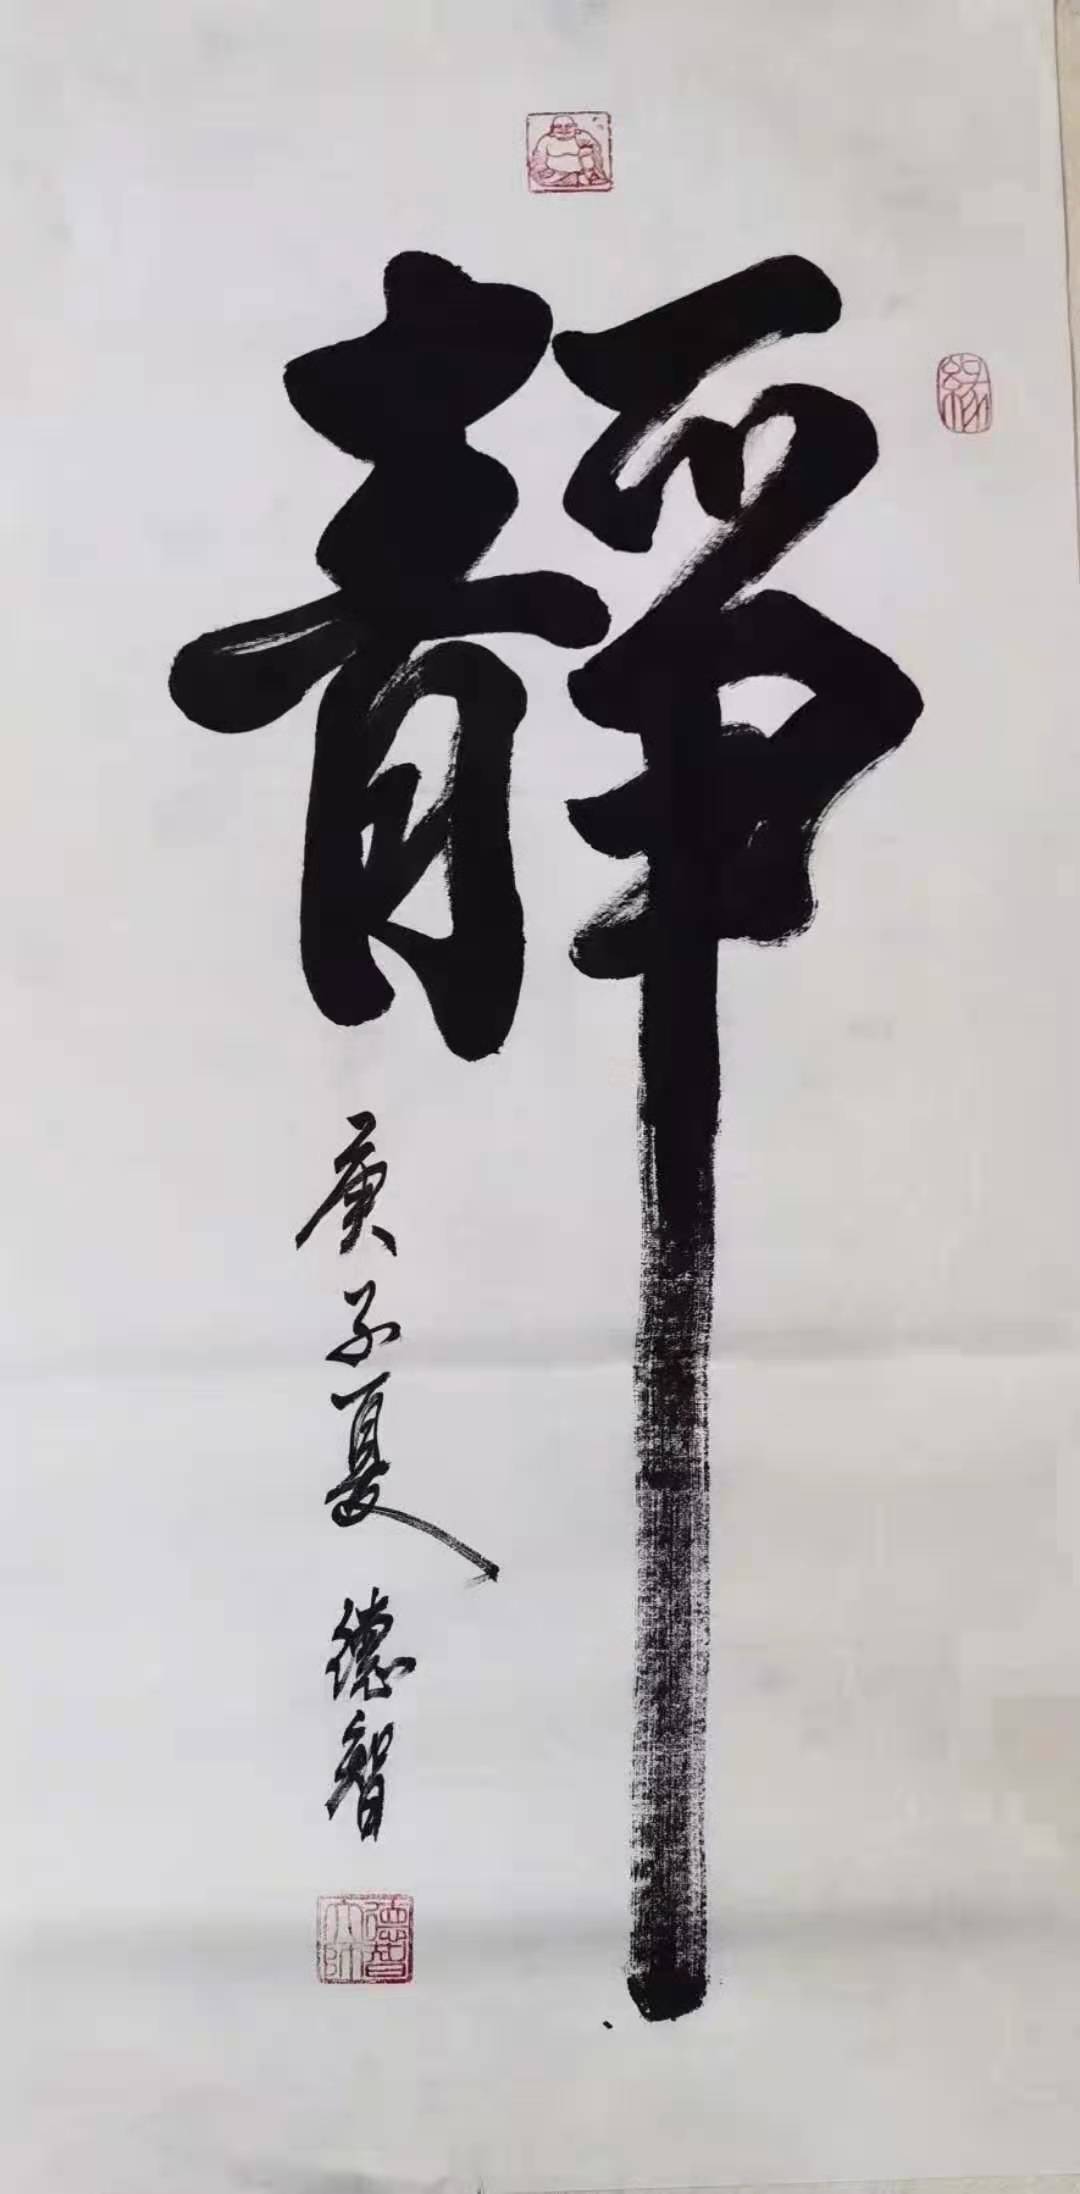 靜
庚子夏 德智
緣
德智大師